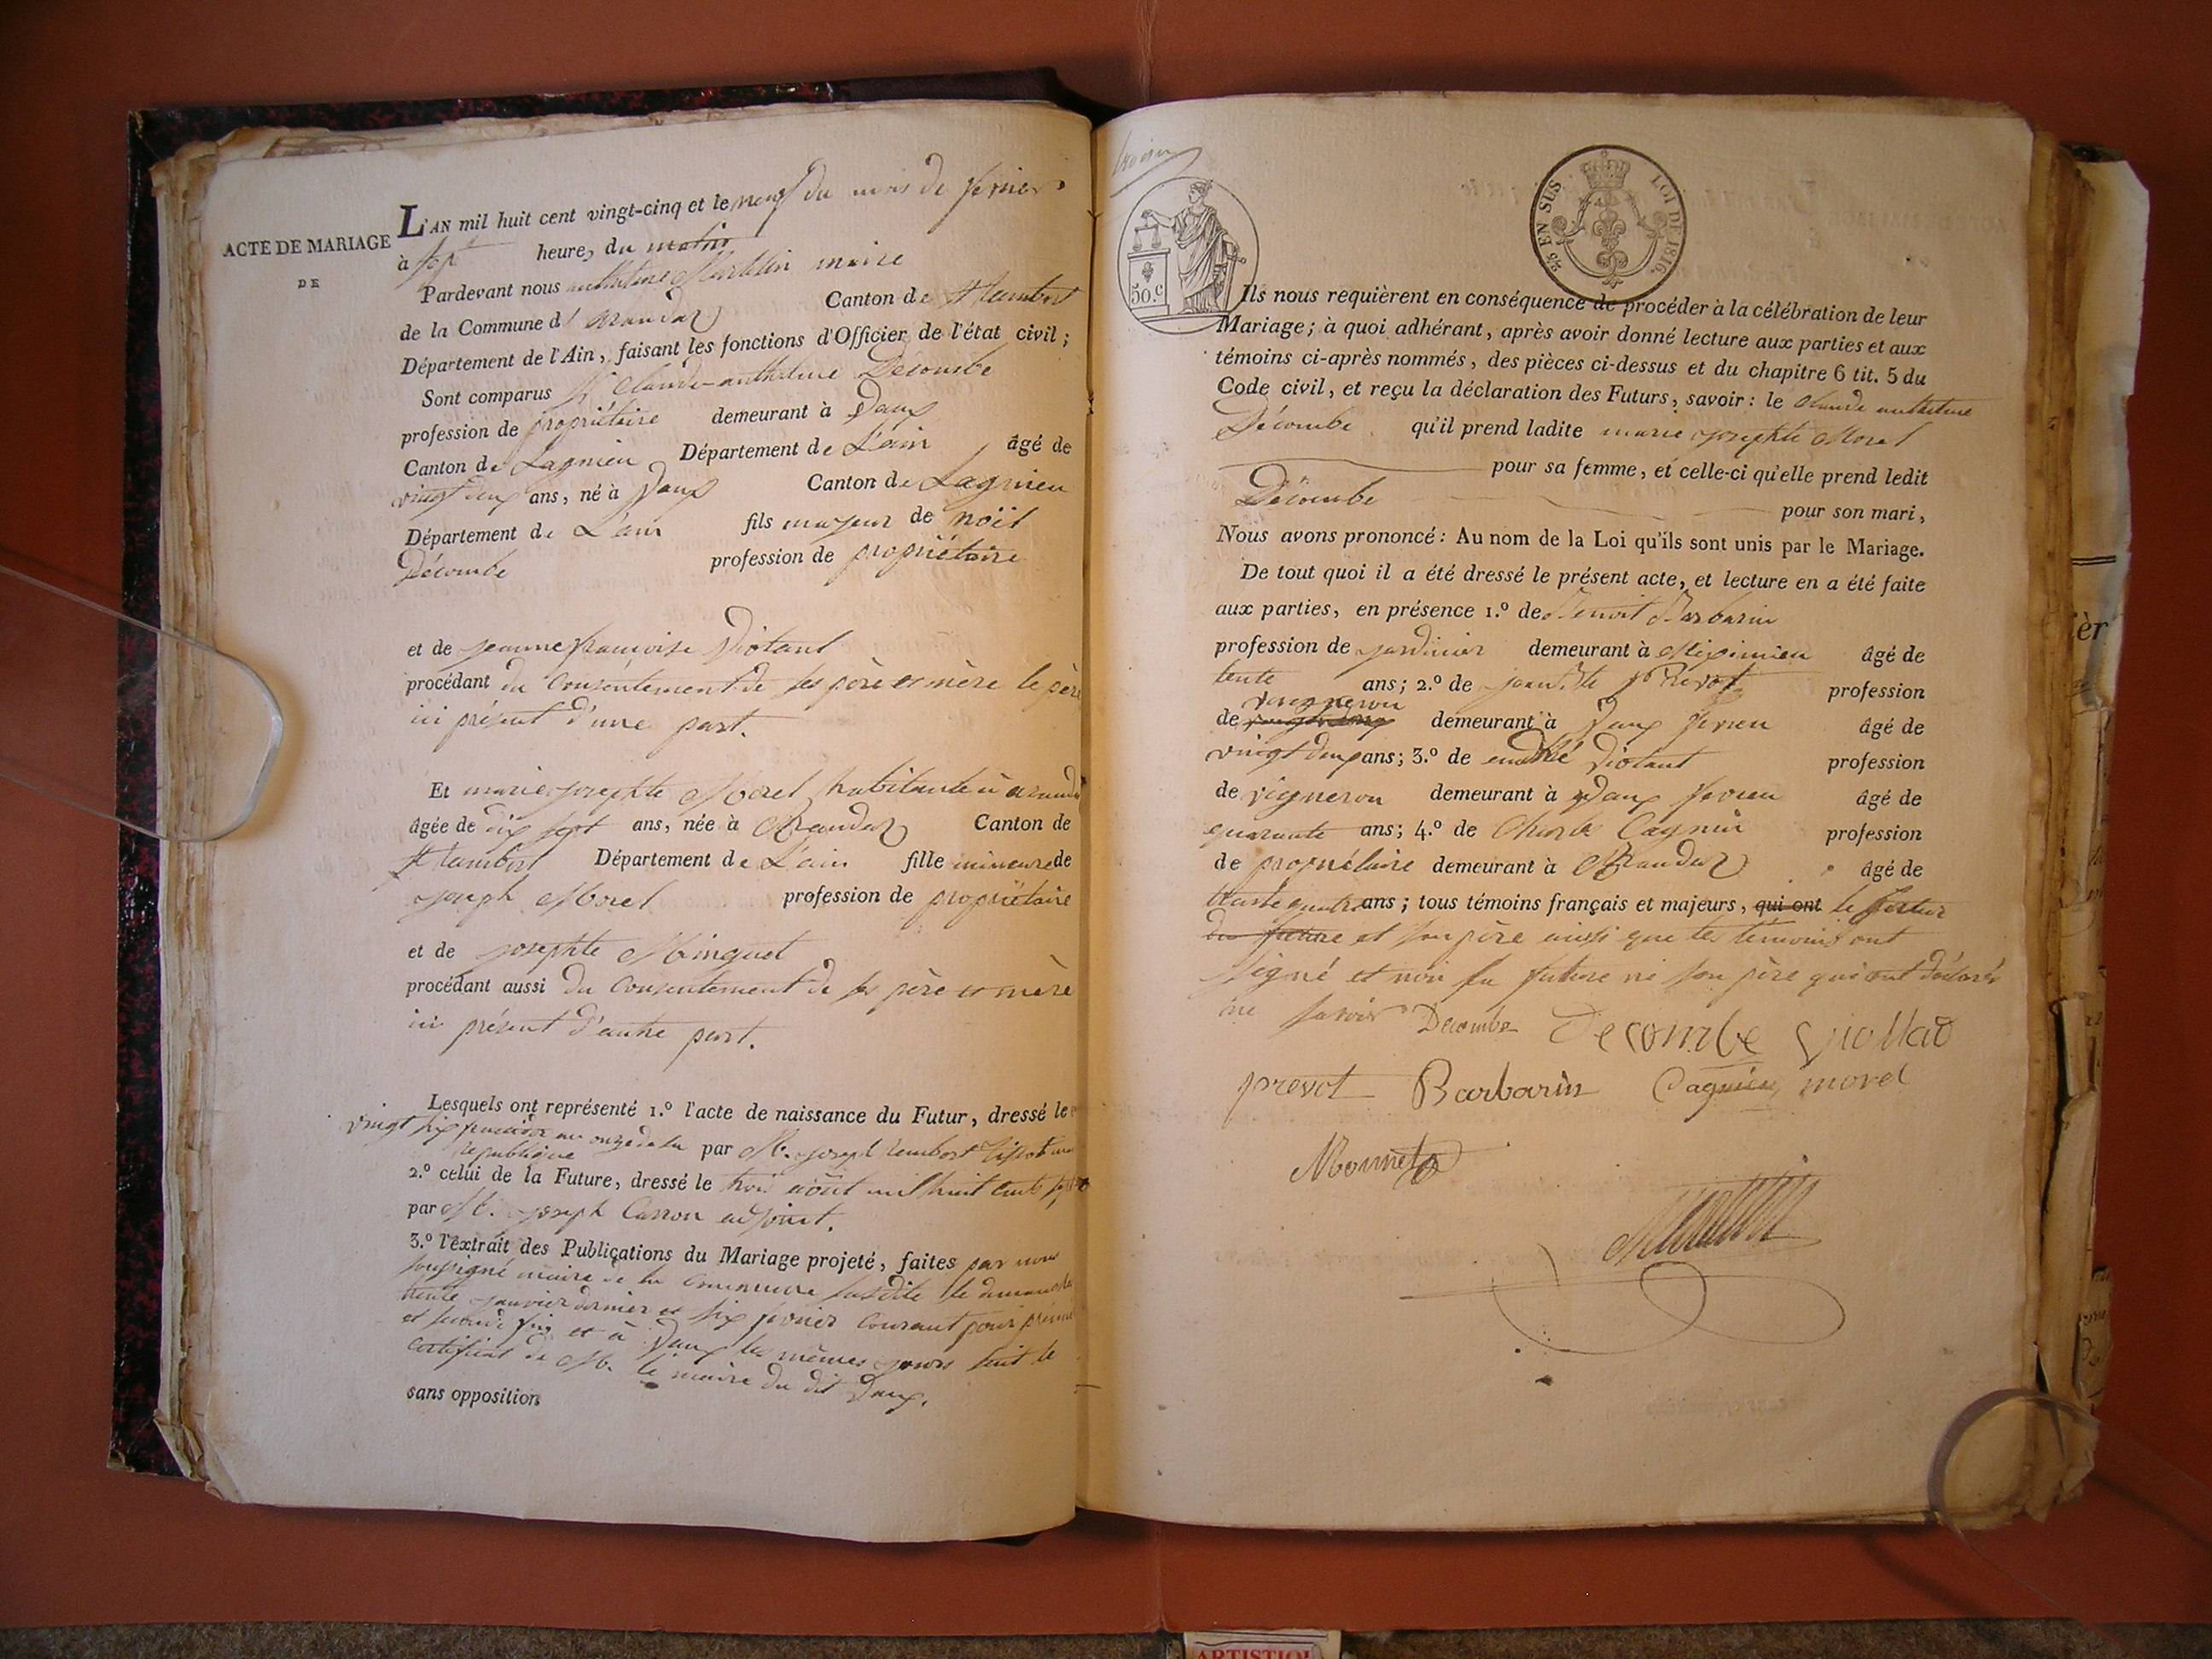 ACTE DE MARIAGE
DE
L'AN mil huit cent vingt-cinq et le neuf du mois de fevrier
à sept heure, du matin
Pardevant nous anthelme maire
de la Commune d' arandas Canton de St Rambert
Département de l'Ain, faisant les fonctions d'Officier de l'état civil;
Sont comparus Sr Claude-anthelme Décombe
profession de propriétaire demeurant à Vaux
Canton de Lagnieu Département de L'ain âgé de
vingt deux ans, né à Vaux Canton de Lagnieu
Département de L'ain fils majeur de noël
Décombe profession de propriétaire
et de jeanne françoise Viotant
procédant du Consentement de ses père et mère le père
ici présent d'une part.
Et marie josephte Morel habitante à arandas
âgée de dix sept ans, née à Arandas Canton de
St Rambert Département de L'ain fille mineure de
joseph Morel profession de propriétaire
et de josephte Minguet
procédant aussi du Consentement de ses père et mère
ici présent d'autre part.
Lesquels ont représenté 1.º l'acte de naissance du Futur, dressé le
vingt six an onze de la
republique par M. joseph rembert
2.º celui de la Future, dressé le trois août mil huit cent sept
par M. joseph Carron adjoint.
3.º l'extrait des Publications du Mariage projeté, faites par nous
soussigné maire de la Commune susdite le dimanche
trente janvier dernier et six fevrier Courant pour première
et seconde fois et à Vaux les mêmes jours suit le
certificat de M. le maire du dit Vaux.
sans opposition
50.c
25 EN SUS LOI DE 1816.
Ils nous requièrent en conséquence de procéder à la célébration de leur
Mariage; à quoi adhérant, après avoir donné lecture aux parties et aux
témoins ci-après nommés, des pièces ci-dessus et du chapitre 6 tit. 5 du
Code civil, et reçu la déclaration des Futurs, savoir: le Claude anthelme
Décombe qu'il prend ladite marie josephte Morel
pour sa femme, et celle-ci qu'elle prend ledit
Décombe pour son mari,
Nous avons prononcé: Au nom de la Loi qu'ils sont unis par le Mariage.
De tout quoi il a été dressé le présent acte, et lecture en a été faite
aux parties, en présence 1.º de Benoit Barbarin
profession de jardinier demeurant à Meximieu âgé de
trente ans; 2.º de jean Bte Prevot profession
vigneron
de demeurant à Vaux fevrieu âgé de
vingt deux ans; 3.º de andré Viotant profession
de vigneron demeurant à Vaux fevrieu âgé de
quarante ans; 4.º de Charle Cagnin profession
de propriétaire demeurant à Arandas âgé de
trente quatre ans; tous témoins français et majeurs, qui ont le futur
du future et son père aussi que les témoins ont
signé et non la future ni son père qui ont déclarés
ne savoir Decombe Decombe Viollad
prevot Barbarin Cagnin morel
Monnet